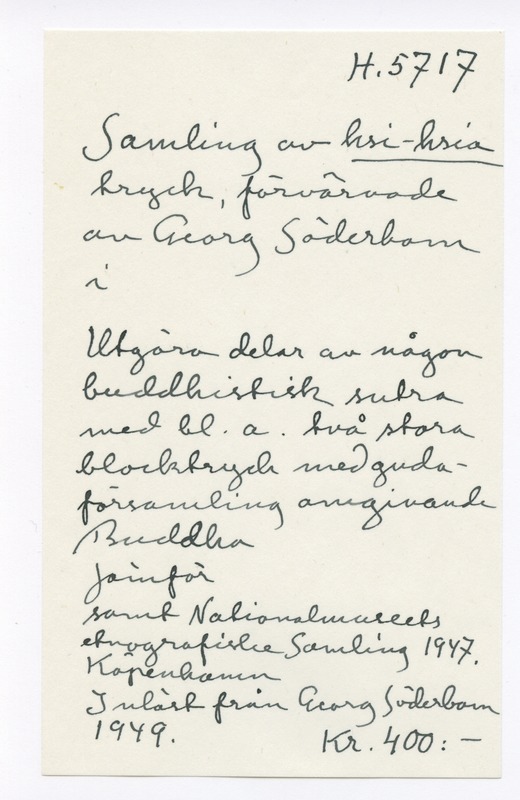 H.5717
Samling av hsi-hsia
tryck, förvärvade
av Georg Söderbom
i
Utgöra delar av någon
buddhistisk sutra
med bl. a. två stora
blocktryck med guda-
församling omgivande
Buddha
Jämför
samt Nationalmuseets
etnografiske Samling 1947.
Köpenhamn
Inlöst från Georg Söderbom
1949.
Kr. 400:-